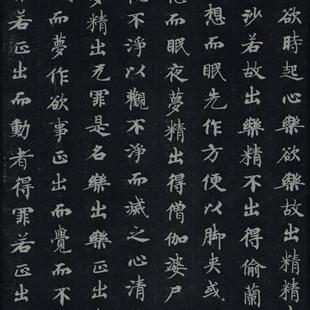 欲時起心樂欲樂故出精精
沙若故出樂精不出得偷蘭
想而眠先作方便以脚夾或
而眠夜夢精出得僧伽婆尸
不淨以觀不淨而滅之心清
夢精出无罪是名樂出樂正出
而夢作欲事正出而覺而不
若正出而動者得罪若正出